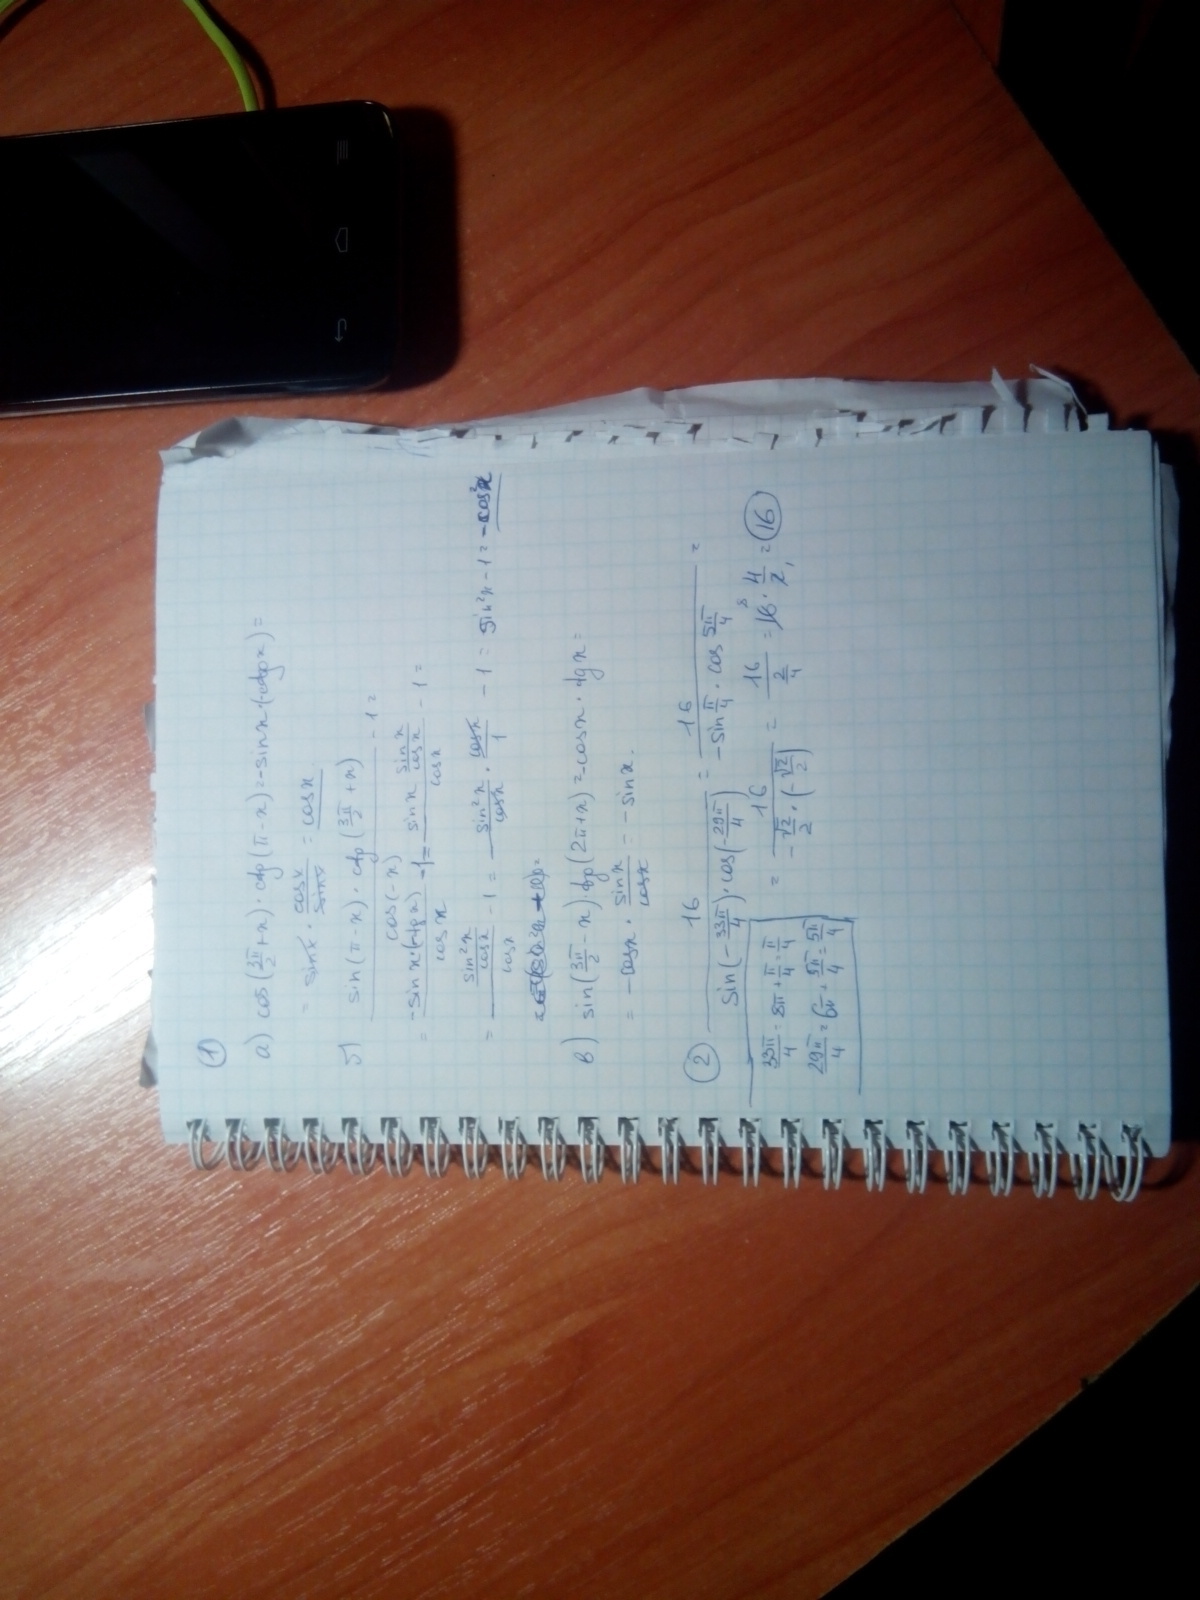 ①
а) cos(3π/2 + x) · ctg(π - x) = -sin x · (-ctg x) =
= sin x · cos x / sin x = cos x.
б) sin(π - x) · ctg(3π/2 + x) / cos(-x) - 1 =
= -sin x · (-tg x) / cos x - 1 = - sin x · sin x / cos x / cos x - 1 =
= sin²x / cos x / cos x - 1 = - sin²x / cos x · cos x / 1 - 1 = sin²x - 1 = -cos²x
в) sin(3π/2 - x) · tg(2π + x) = -cos x · tg x =
= -cos x · sin x / cos x = -sin x.
② 16 / sin(-33π/4) · cos(-29π/4) = 16 / -sin π/4 · cos 5π/4 =
33π/4 = 8π + π/4 = π/4
= 16 / -√2/2 · (-√2/2) = 16 / 2/4 = 16 · 4/2 = 16
29π/4 = 6π + 5π/4 = 5π/4